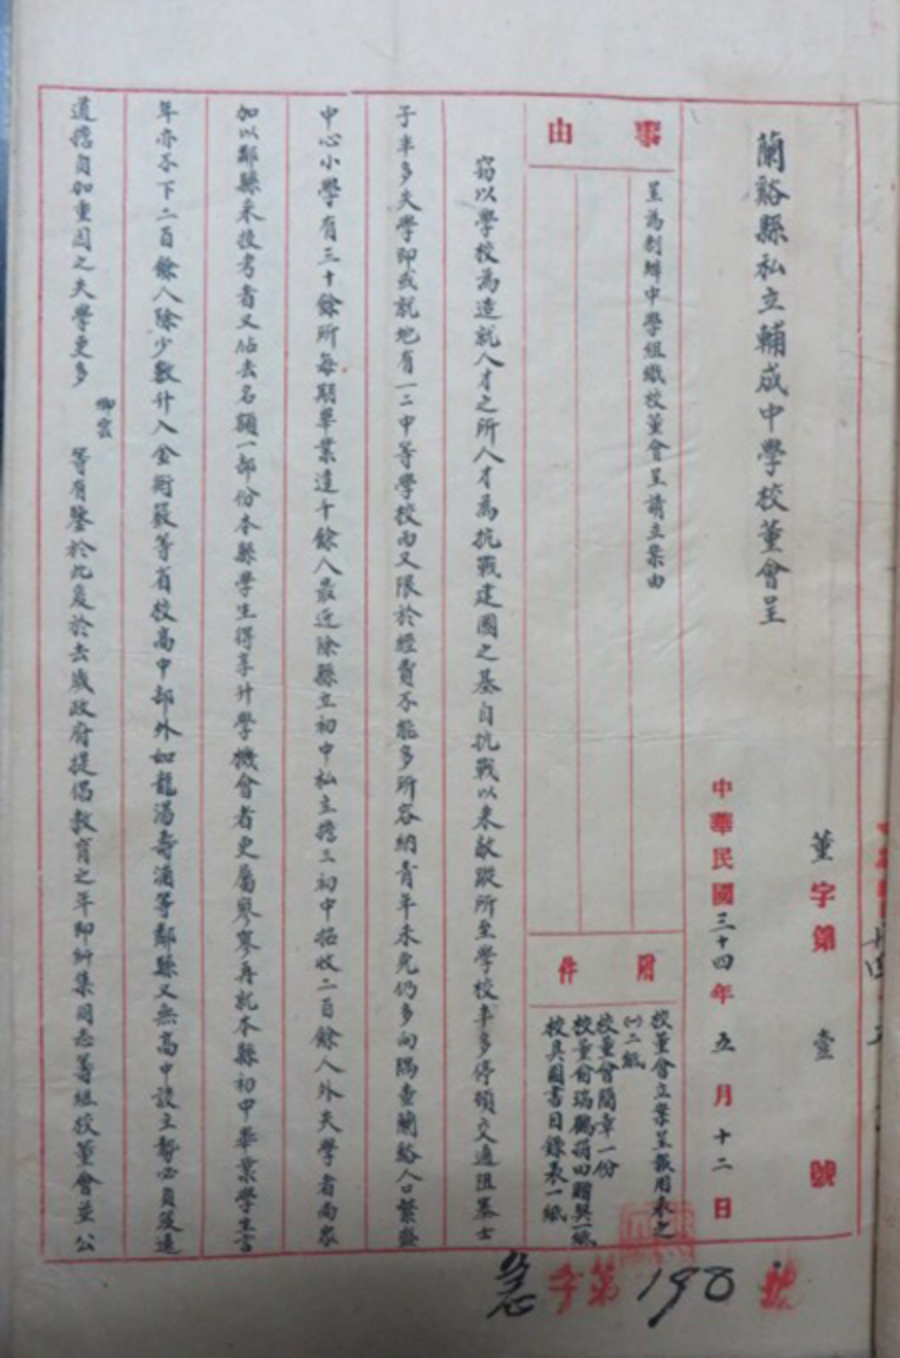 董字第壹號
蘭谿縣私立輔成中學校董會呈
中華民國三十四年五月十二日
事由
呈為創辦中學組織校董會呈請立案由
附件
校董會立案呈報用表之
㈠二紙
校董會簡章一份
校董俞瑞鶴捐田贈契一紙
校具圖書目錄表一紙
竊以學校為造就人才之所人才為抗戰建國之基自抗戰以來敵蹤所至學校率多停頓交通阻塞士
子率多失學即或就地有一二中等學校而又限於經費不能多所容納青年未免仍多向隅查蘭谿人口繁盛
中心小學有三十餘所每期畢業達千餘人最近除縣立初中私立擔三初中招收二百餘人外失學者尚眾
加以鄰縣來投考者又佔去名額一部份本縣學生得享升學機會者更屬寥寥再就本縣初中畢業學生言
年亦不下二百餘人除少數升入金衢嚴等省校高中部外如龍湯壽浦等鄰縣又無高中設立勢必負笈遠
道擔負加重因之失學更多 等有鑒於此爰於去歲政府提倡教育之年即糾集同志籌組校董會並公
急字第198號